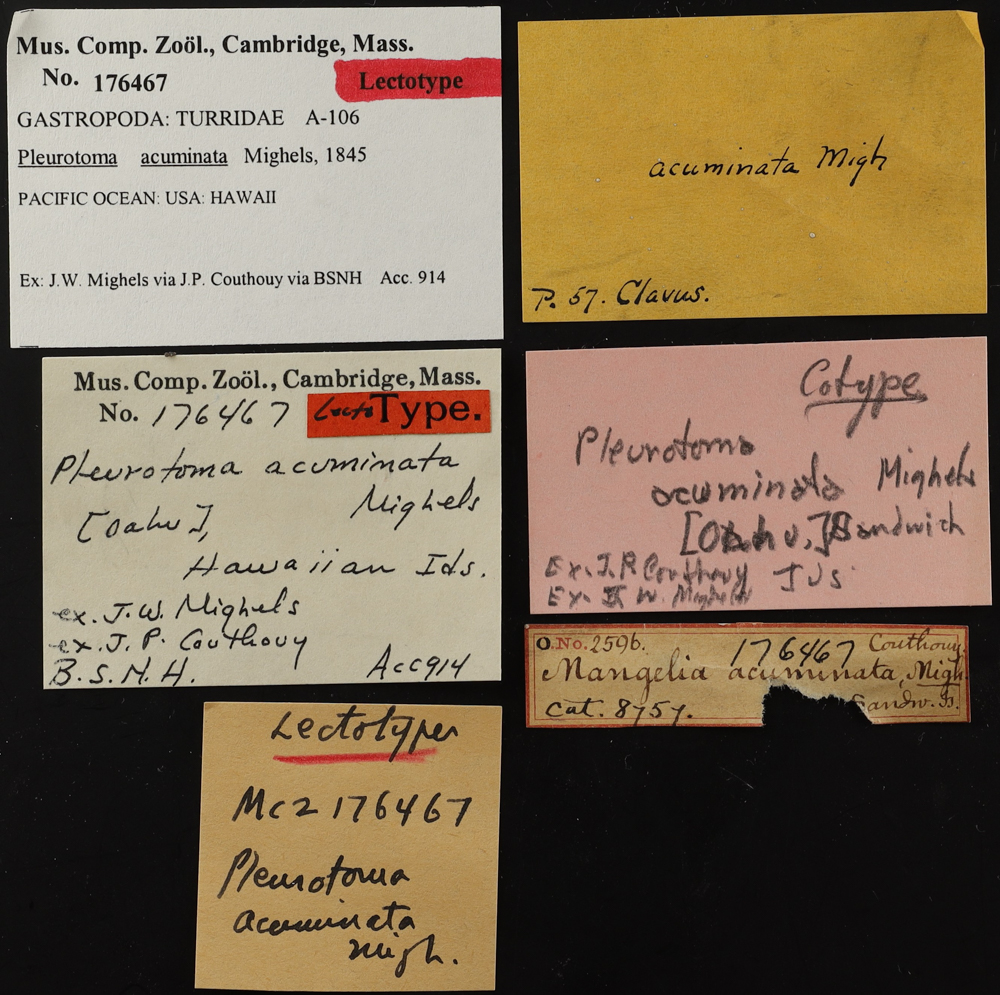 Mus. Comp. Zoöl., Cambridge, Mass.
No. 176467 Lectotype
GASTROPODA: TURRIDAE A-106
Pleurotoma acuminata Mighels, 1845
PACIFIC OCEAN: USA: HAWAII
Ex: J.W. Mighels via J.P. Couthouy via BSNH Acc. 914
acuminata Migh
P. 57. Clavus.
Mus. Comp. Zoöl., Cambridge, Mass.
No. 176467 LectoType.
Pleurotoma acuminata
Mighels
[Oahu],
Hawaiian Ids.
ex. J.W. Mighels
ex. J.P. Couthouy
B.S.N.H. Acc914
Cotype
Pleurotoma
acuminata Mighels
[Oahu,] Sandwich
Ex. J.P. Couthouy Ids
Ex J W. Mighels
O.No. 2596. 176467 Couthouy.
Mangelia acuminata, Migh.
Cat. 8757. Sandw. Is.
Lectotype
MCZ 176467
Pleurotoma
acuminata
Migh.